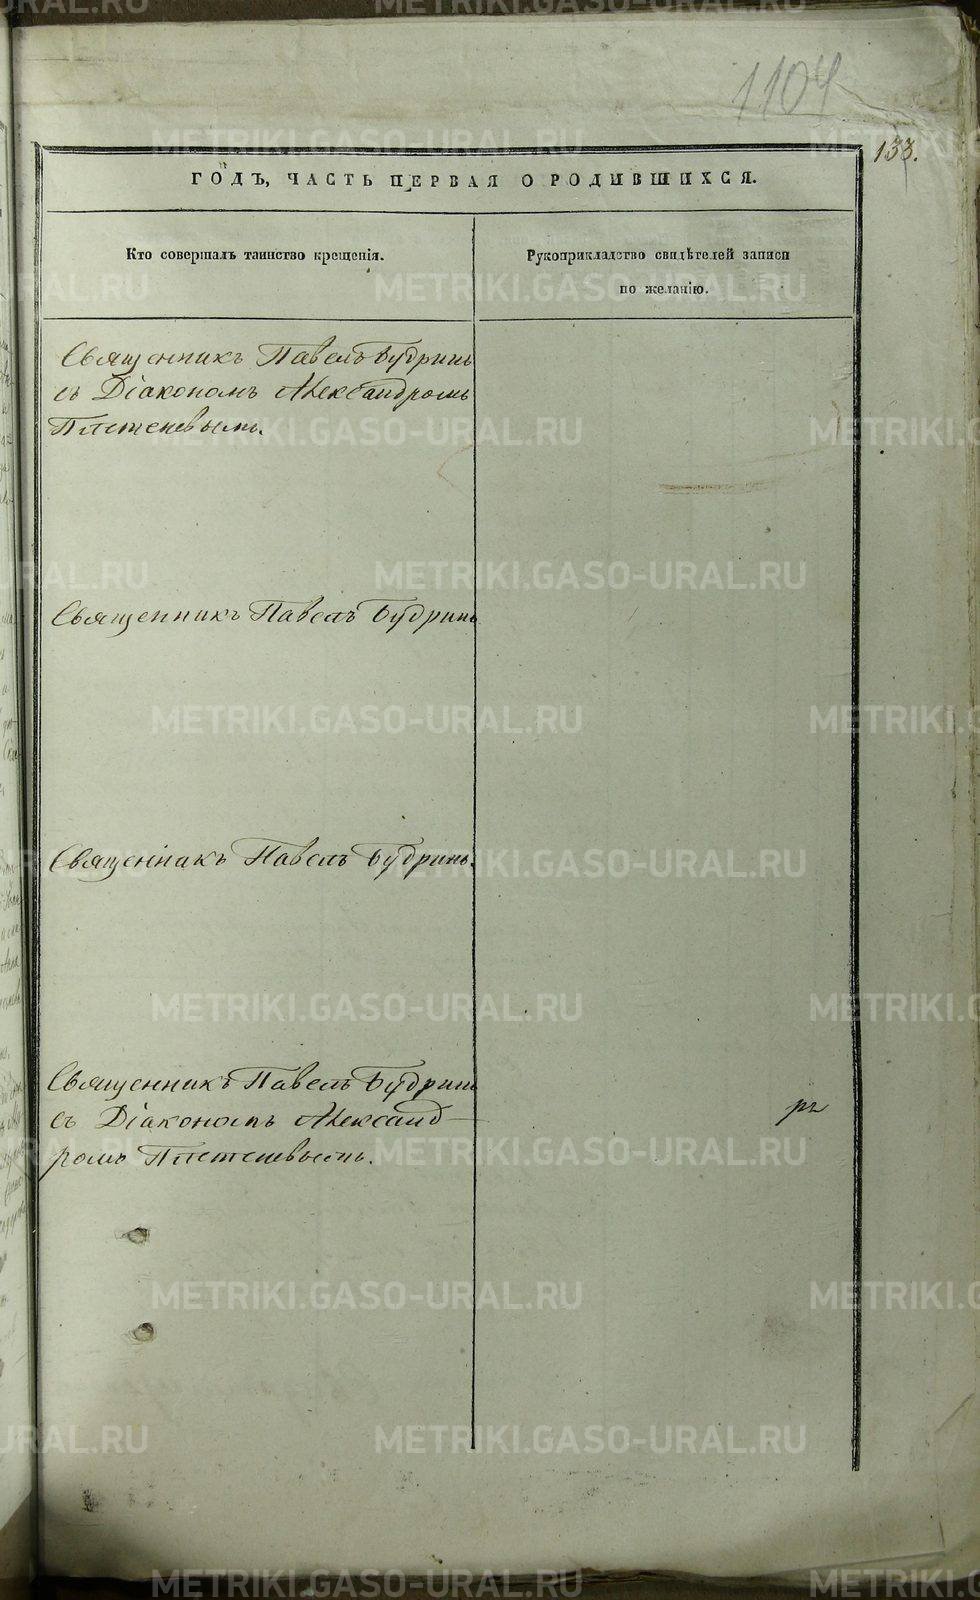 1104
133.
ГОДЪ, ЧАСТЬ ПЕРВАЯ О РОДИВШИХСЯ.
Кто совершалъ таинство крещенія.
Рукоприкладство свидѣтелей записи
по желанію.
Священникъ Павелъ Будринъ
съ Діакономъ Александромъ
Плетеневымъ.
Священникъ Павелъ Будринъ
Священникъ Павелъ Будринъ.
Священникъ Павелъ Будринъ
съ Діакономъ Александ-
ромъ Плетеневымъ.
METRIKI.GASO-URAL.RU